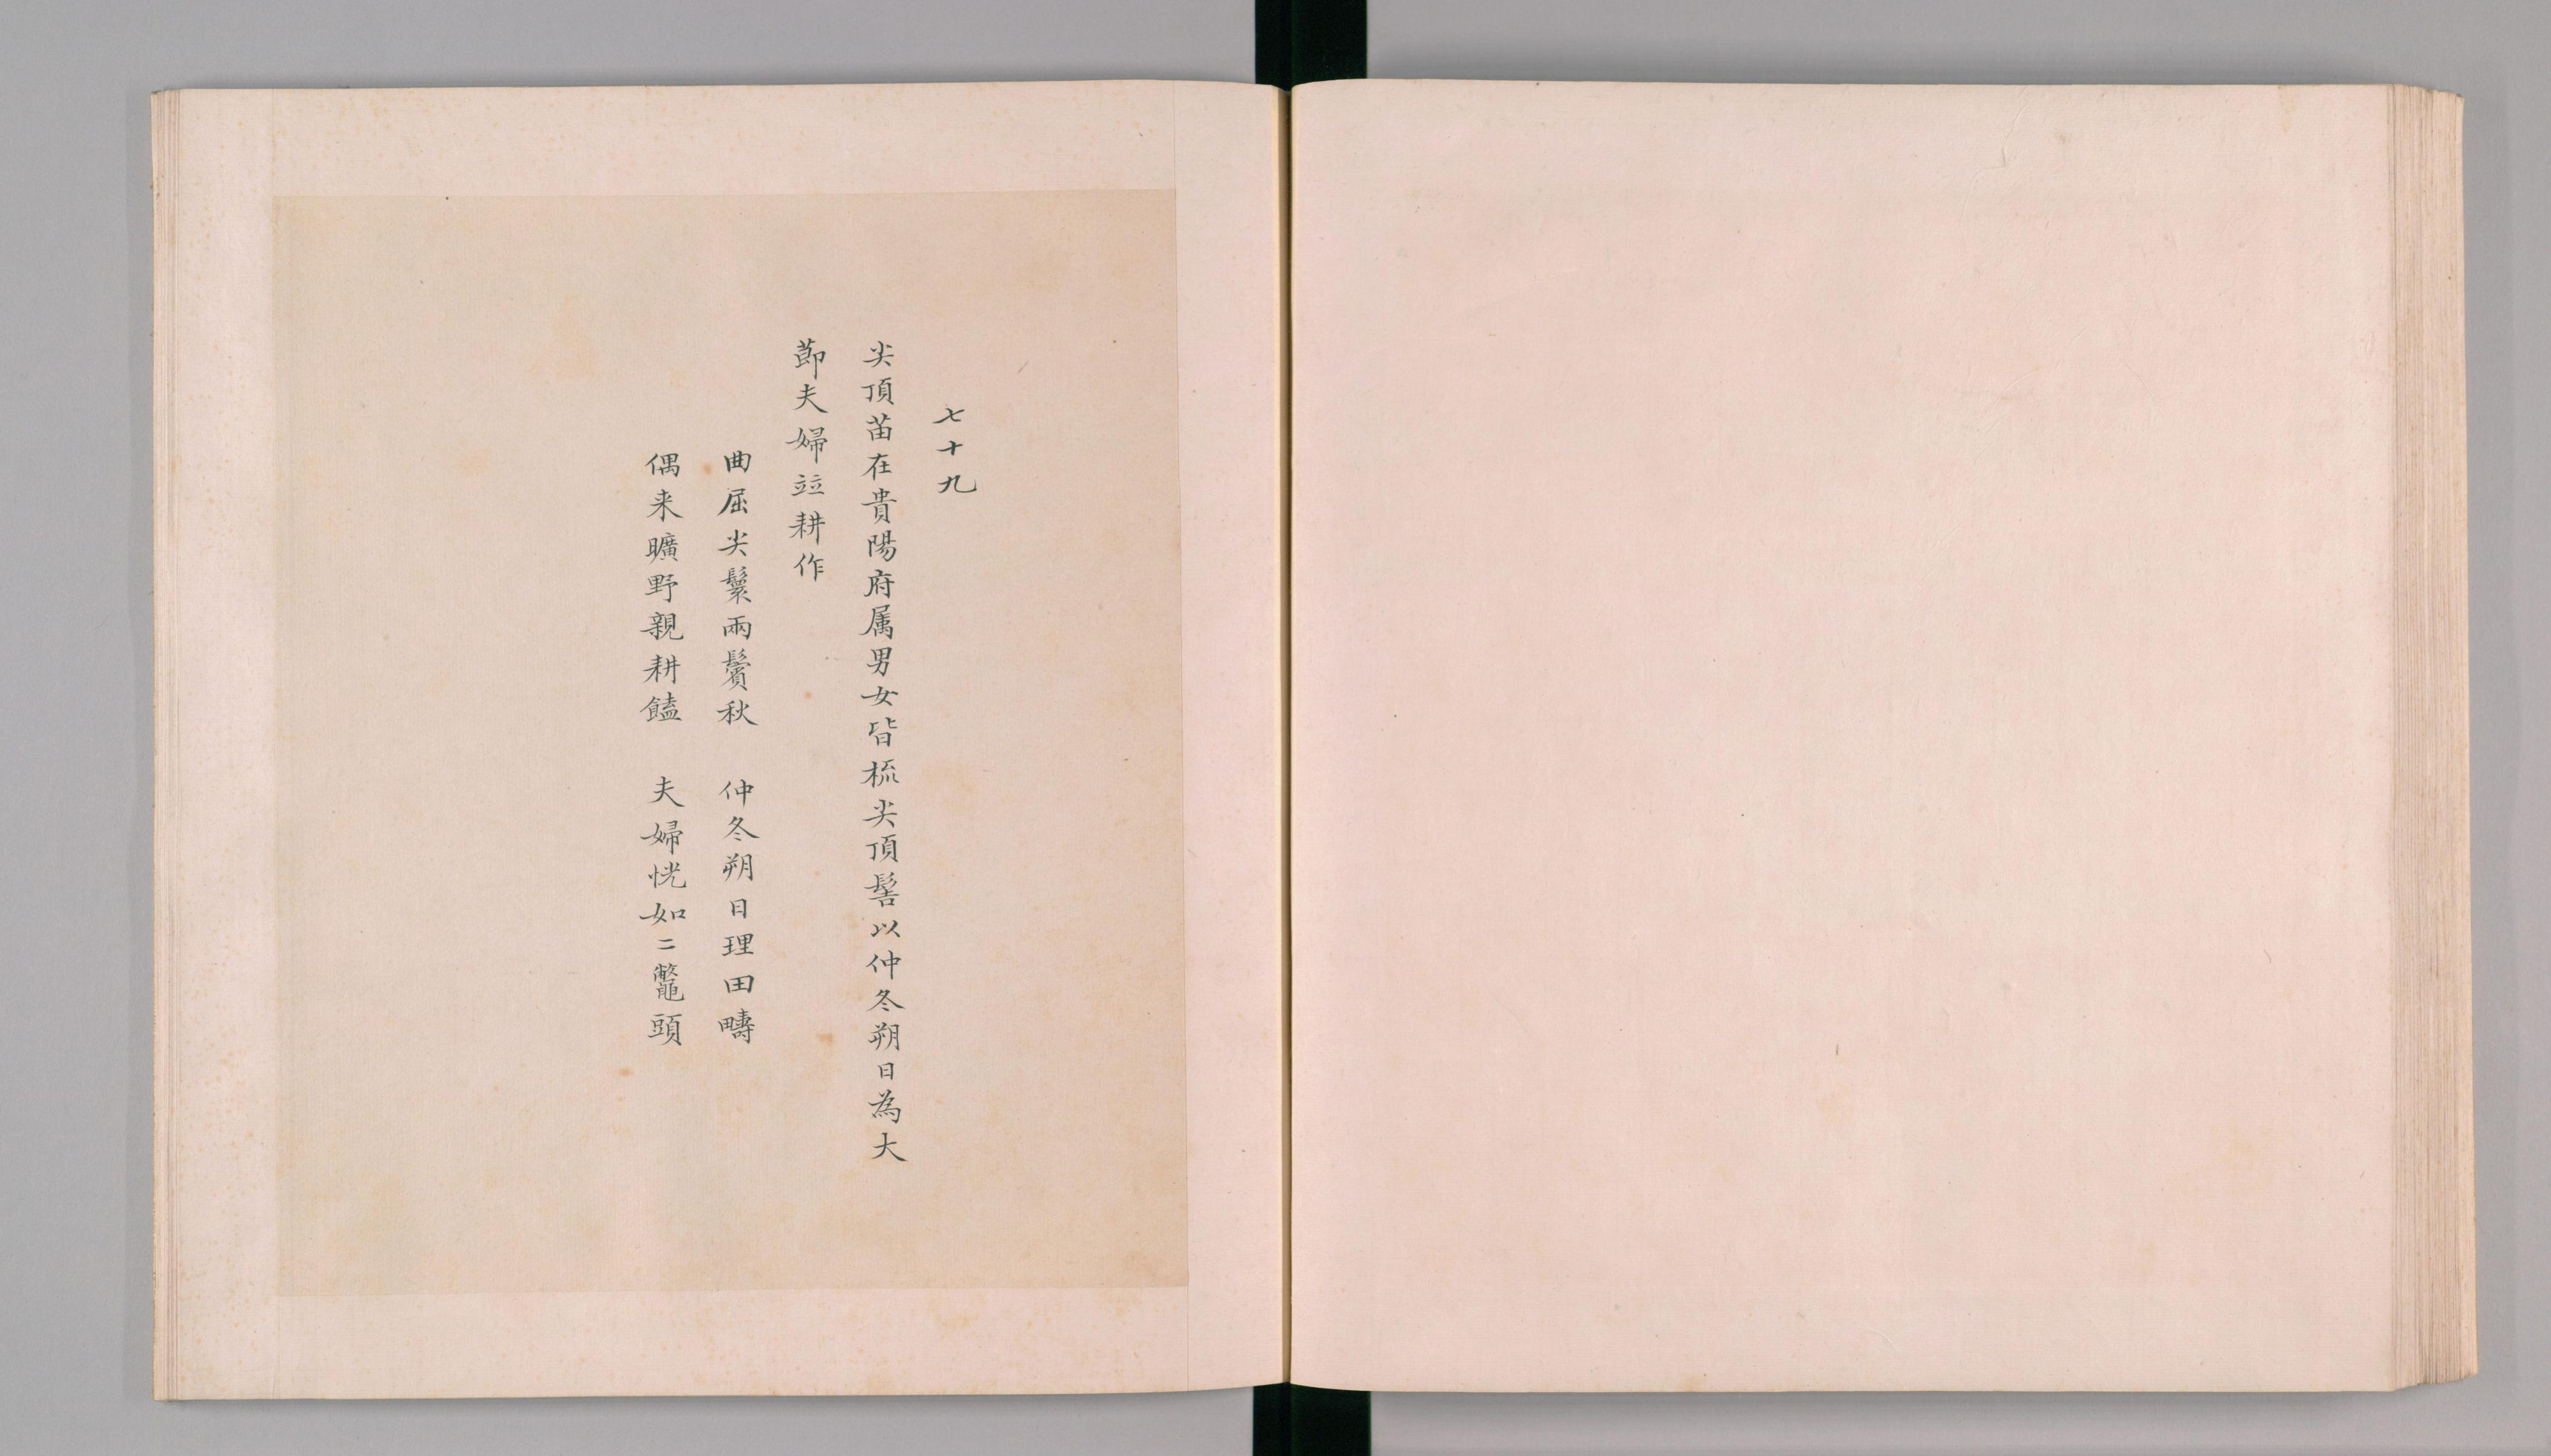 七十九
尖頂苗在貴陽府属男女皆梳尖頂髻以仲冬朔日為大
莭夫婦竝耕作
曲屈尖鬟兩鬢秋　仲冬朔日理田疇
偶来曠野親耕饁　夫婦恍如二鼈頭